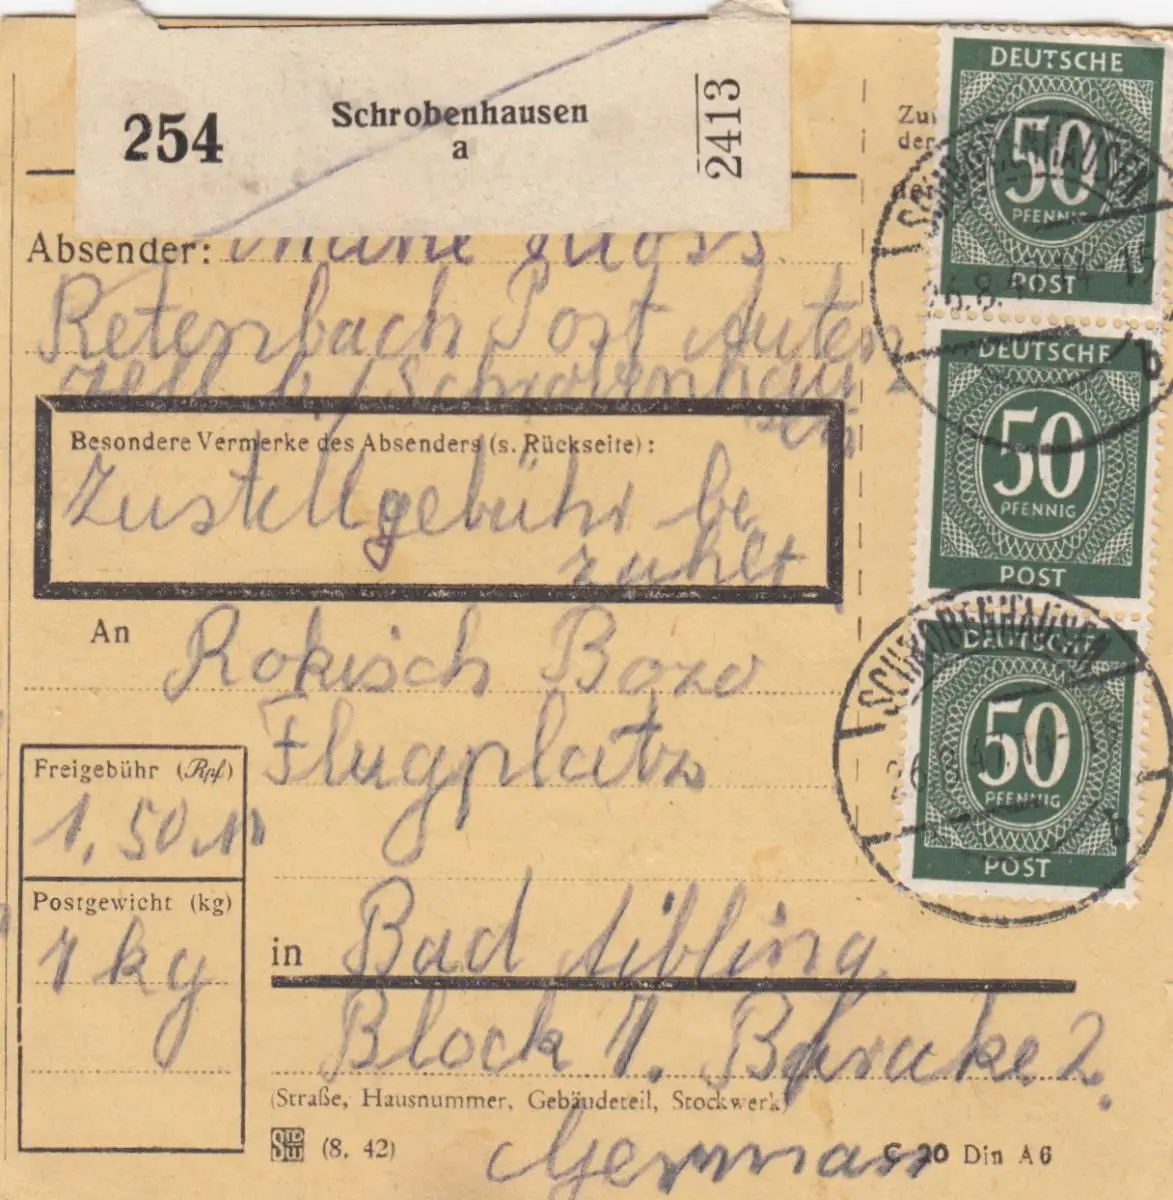 254
Schrobenhausen
a
2413
Absender:
Retenbach Post Auten
zell b/Schrobenhau
sen
Besondere Vermerke des Absenders (s. Rückseite):
Zustellgebühr be
zahlt
An Rokisch Bozo
Flugplatz
Freigebühr (Rpf)
1,50 M
Postgewicht (kg)
1 kg
in Bad Aibling
Block 1. Baracke 2.
(Straße, Hausnummer, Gebäudeteil, Stockwerk)
German
(8. 42)
C 20 Din A 6
der
DEUTSCHE
50
PFENNIG
POST
SCHROBENHAUSEN
b
DEUTSCHE
50
PFENNIG
POST
DEUTSCHE
50
PFENNIG
POST
SCHROBENHAUSEN
b